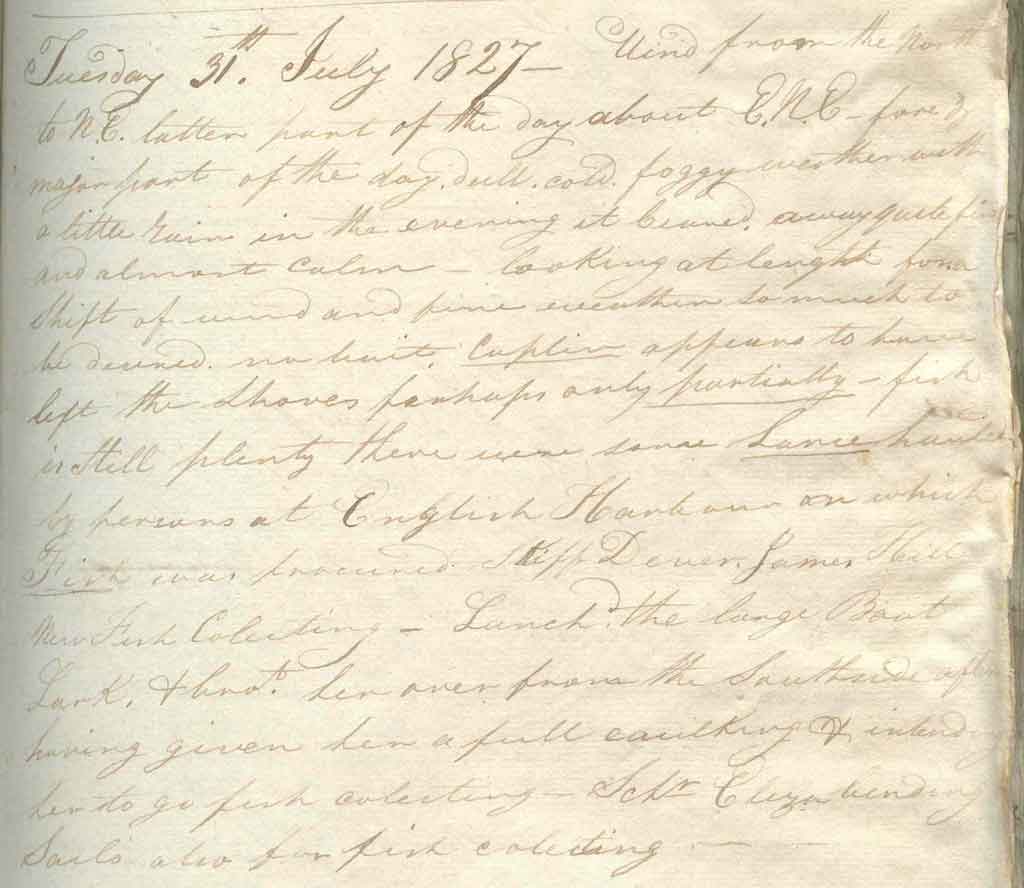 Tuesday 31th. July 1827 - Wind from the North
to N.E. latter part of the day about E.N.E -
major part of the day. dull. cold. foggy weather with
a little rain in the evening it cleared. away quite fine
and almost calm - looking at lenght for a
shift of wind and fine weather so much to
be desired. no bait, Caplin appears to have
left the Shores perhaps only partially - fish
is still plenty there were some Lance hauled
by persons at English Harbour on which
Fish was procured. Skiff Dover. James Hill
New Fish Colecting - Lanch'd. the large Boat
Lark, & bro't. her over from the Southside after
having given her a full caulking & intend
her to go fish colecting - Schr. Eliza bending
Sails also for fish colecting - -